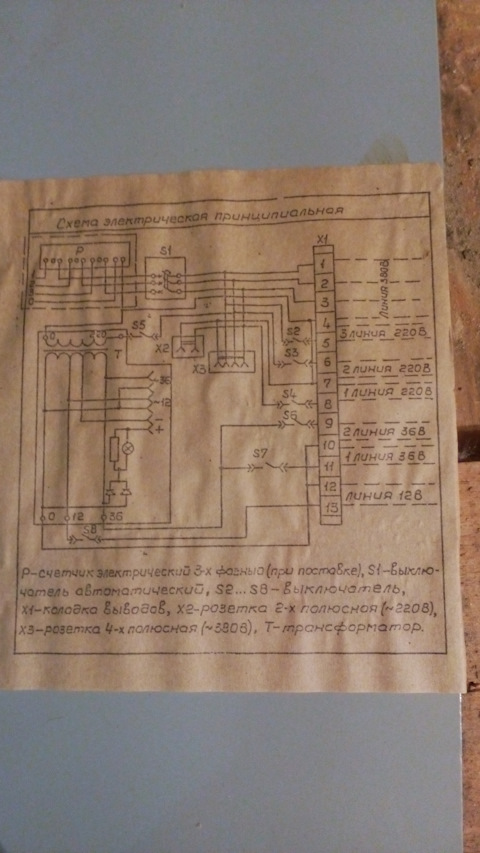 Схема электрическая принципиальная
P
S1
X1
1
2
3
4
5
6
7
8
9
10
11
12
13
Линия 380В
3 линия 220В
2 линия 220В
1 линия 220В
2 линия 36В
1 линия 36В
Линия 12В
0
220
S5
T
X2
X3
S2
S3
S4
S6
S7
36
~12
-
+
0
12
36
S8
P-счетчик электрический 3-х фазный (при поставке), S1-выклю-
чатель автоматический, S2...S8-выключатель,
X1-колодка выводов, X2-розетка 2-х полюсная (~220В),
X3-розетка 4-х полюсная (~380В), T-трансформатор.